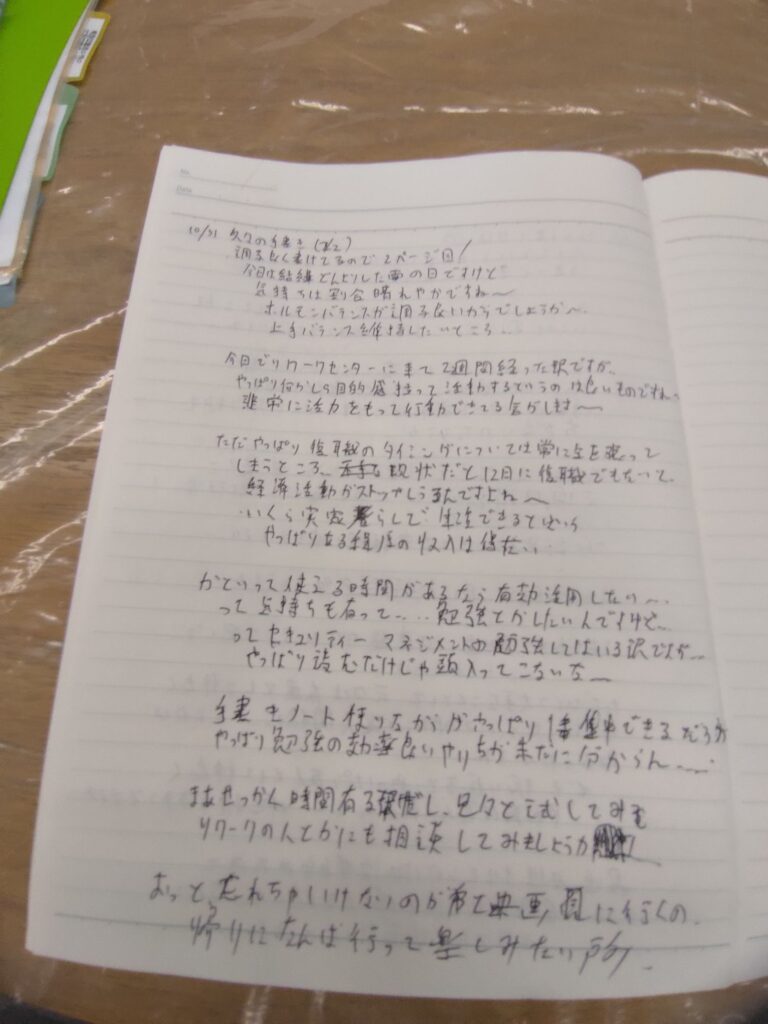 No.
Date
10/31 久々の手書き (2/2)
調子良く書けてるので2ページ目!
今日は結構どんよりした雨の日ですけど
気持ちは割合晴れやかですね〜
ホルモンバランスが調子良いからでしょうか〜
上手バランスを維持したいところ...
今日でリワークセンターに来て2週間経った訳ですが、
やっぱり何かしら目的感持って活動するというのは良いものですね〜
非常に活力をもって行動できてる気がします〜
ただやっぱり復職のタイミングについては常に気を遣って
しまうところ、現状だと12月に復職でもないと、
経済活動がストップしうるんですよね〜
いくら実家暮らしで生活できるといえど
やっぱりある程度の収入は得たい
かといって使える時間があるなら有効活用したい〜
って気持ちも有って....勉強とかしたいんですけど...
ってセキュリティーマネジメントの勉強してはいる訳ですが〜
やっぱり読むだけじゃ頭入ってこないな〜
手書きノート使いながらがやっぱり1番集中できるだろうが
やっぱり勉強の効率良いやり方が未だに分からん〜
まぁせっかく時間有るし、色々と試してみる
リワークの人とかにも相談してみましょうか
おっと忘れちゃいけないのが 映画 に行くの、
帰りになんば行って楽しみたい所、